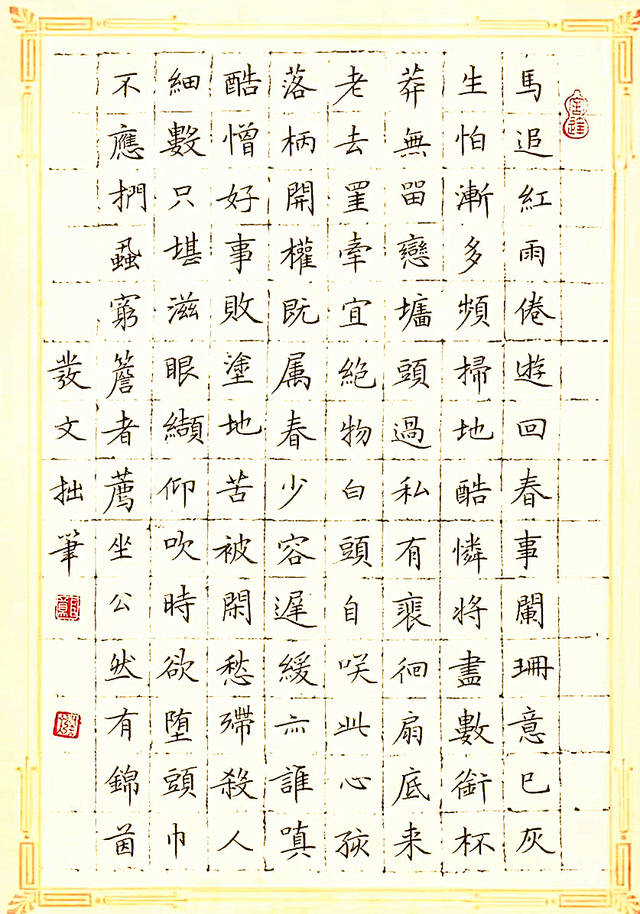 馬追紅雨倦遊回春事闌珊意已灰
生怕漸多頻掃地酷憐將盡數銜杯
莽無留戀墻頭過私有裵徊扇底来
老去罣牽宜絕物白頭自咲此心孩
落柄開權既属春少容遲緩亦誰嗔
酷憎好事敗塗地苦被閑愁殢殺人
細數只堪滋眼纈仰吹時欲堕頭巾
不應捫蝨窮簷者薦坐公然有錦茵
發文拙筆